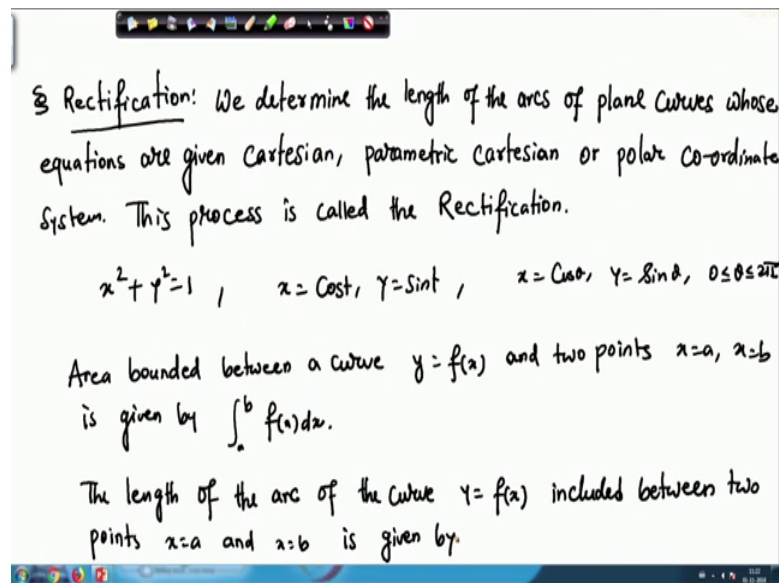 § Rectification: We determine the length of the arcs of plane curves whose
equations are given Cartesian, parametric cartesian or polar co-ordinate
System. This process is called the Rectification.
x² + y² = 1 , x = Cost, y = Sint , x = Cosθ, y = Sinθ, 0 ≤ θ ≤ 2π
Area bounded between a curve y = f(x) and two points x=a, x=b
is given by ∫ₐᵇ f(x)dx.
The length of the arc of the curve y = f(x) included between two
points x=a and x=b is given by
11:22